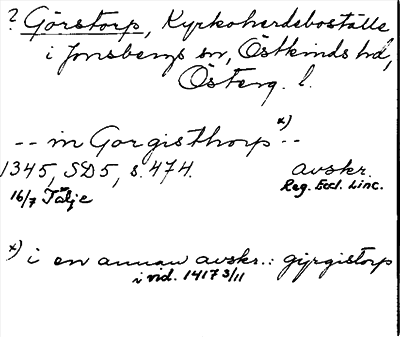 ? Görstorp, Kyrkoherdeboställe
i Jonsbergs sn, Östkinds hd,
Österg. l.
-- in Gorgisthorp x) --
1345, SD5, s. 474. avskr.
16/7 Tälje Reg. Eccl. Linc.
x) i en annan avskr.: gyrgistorp
i vid. 1417 3/11